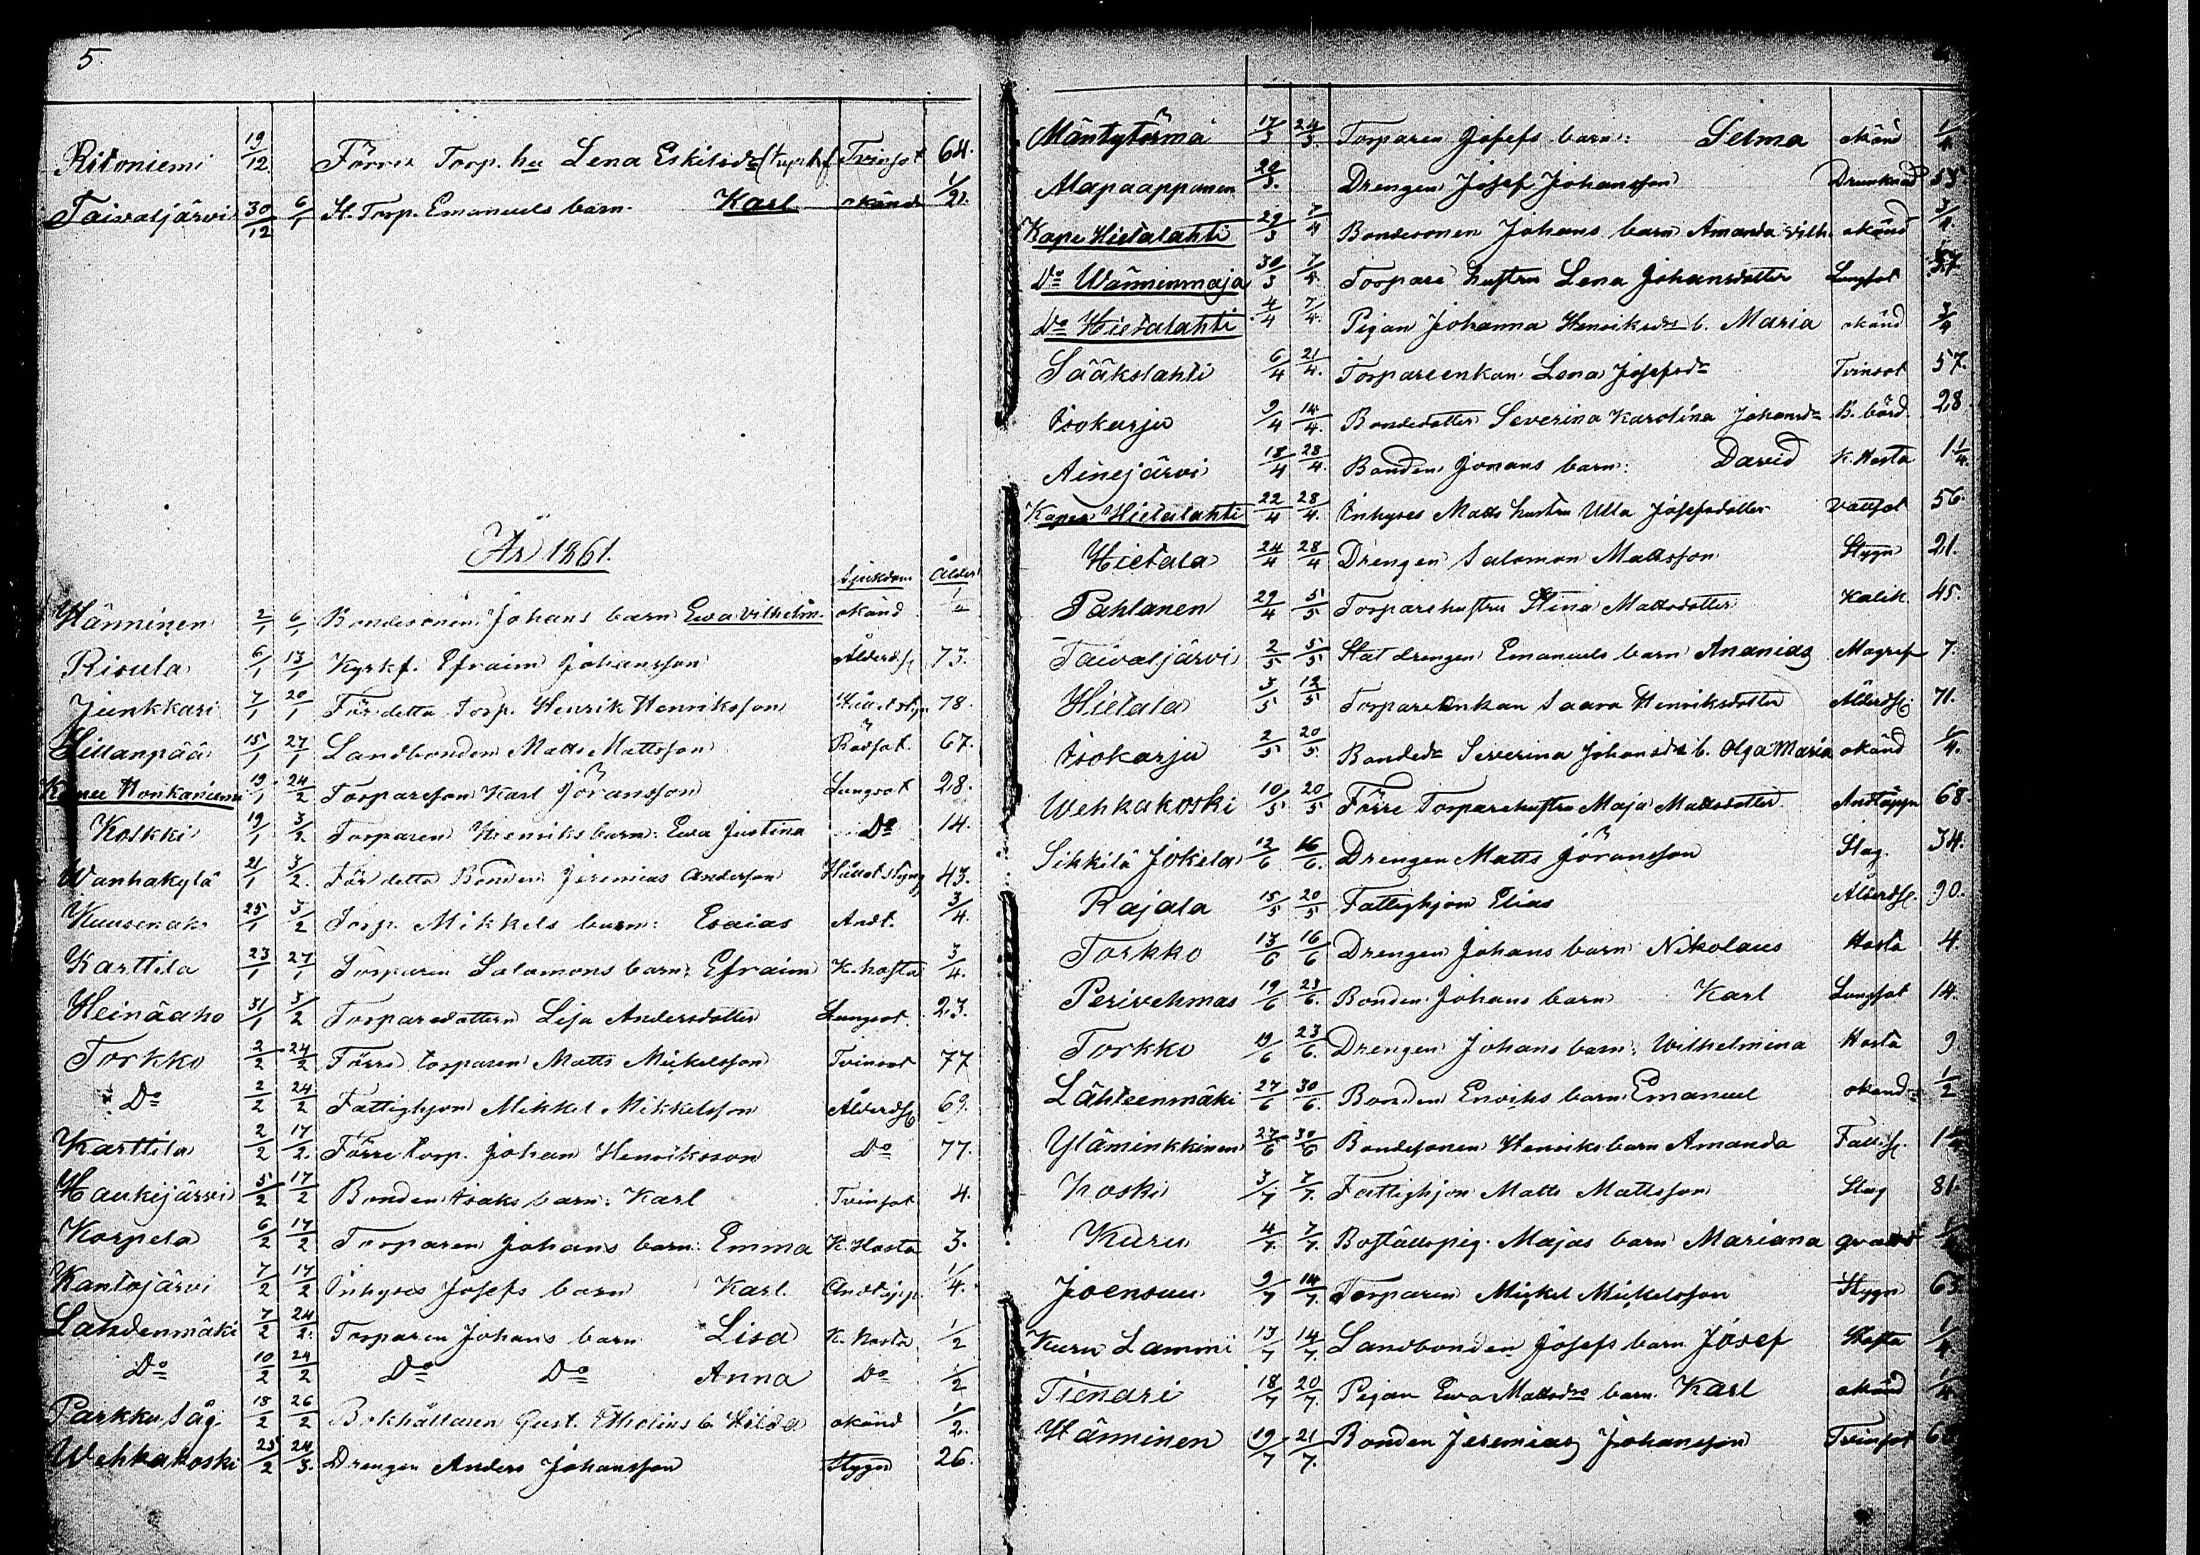 5.
Ritoniemi 19/12 Förre Torp. hu Lena Eskilsd:r Tvinsot 64.
Taivaljärvi 30/12 6/1 St. Torp. Emanuels barn Karl okänd 1/2.
År 1861.
Sjukdom Ålder
Hänninen 2/1 6/1 Bondesonen Johans barn Ewa Vilhelm. okänd 1/2
Risula 6/1 13/1 Kyrkf. Efraim Johansson Ålderds. 73.
Junkkari 7/1 20/1 För detta Torp. Henrik Henriksson 78.
15/1 27/1 Landbonden Matts Mattsson Rödsot. 67.
Honkaniemi 19/1 24/2 Torparson Karl Jöransson Lungsot 28.
Koskki 19/1 3/2 Torparen Henriks barn: Ewa Justina Do 14.
Wanhakylä 21/1 3/2. För detta Bonden Jeremias Anderson Håll o styng 43.
25/1 3/2 Torp. Mikkels barn: Esaias Andt. 3/4.
Karttila 23/1 27/1 Torparen Salamons barn: Efraim K. hosta 3/4.
Heinäaho 31/1 3/2 Torparedottern Lisa Andersdotter Lungsot. 23.
Torkko 2/2 24/2 Förre torparen Matts Mickelsson Tvinsot 77
Do 2/2 24/2 Fattighjon Mikkel Mikkelsson Ålderds. 69.
Karttila 2/2 17/2. Förre torp. Johan Henriksson Do 77.
Haukijärvi 5/2 17/2 Bonden Isaks barn: Karl Tvinsot 4.
Korpela 6/2 17/2 Torparen Johans barn: Emma K. Hosta 3.
Kantojärvi 7/2 17/2 Inhyses Josefs barn Karl. Andtäpp. 1/4.
Lahdenmäki 7/2 24/2. Torparen Johans barn Lisa K. hosta 1/2
Do 10/2 24/2 Do Do Anna Do 1/2
Parkku såg 18/2 26/2 Bokhållaren Gust. Etholins b. Hilda okänd 1/2.
Wehkakoski 25/2 24/3. Drengen Anders Johansson Stygn 26.
Mäntytörmä 17/3 24/3. Torparen Josefs barn: Selma okänd
Alapaappanen 20/3. Drengen Josef Johansson Drunknad 55
Kape Hietalahti 29/3 7/4 Bondesonen Johans barn Amanda Vilh. okänd 3/4.
Do Wänninmaja 30/3 7/4. Torpare hustru Lena Johansdotter Lungsot
Do Hietalahti 4/4 7/4. Pigan Johanna Henriksd:rs b. Maria okänd 3/4
Sääkslahti 6/4 21/4. Torpareenkan Lena Josefsdr Tvinsot 57.
Isokarju 9/4 14/4. Bondedotter Severina Karolina Johansdr B. börd. 28.
Ainejärvi 18/4 28/4. Bonden Jonans barn: David K. Hosta 1 1/4.
Kapee Hietalahti 22/4 28/4. Inhyses Matts hustru Ulla Josefsdotter Vattsot 56.
Hietala 24/4 28/4 Drengen Salomon Mattsson Stygn 21.
Pahlanen 29/4 5/5 Torparehustru Stina Mattsdotter Kolik 45.
Taivaljärvi 2/5 5/5 Stat drengen Emanuels barn Ananias Magref 7.
Hietala 3/5 12/5 Torpareenkan Saara Henriksdotter Ålderds. 71.
Isokarju 2/5 20/5. Bondedr Severina Johansdrs b. Olga Maria okänd 1/4.
Wehkakoski 10/5 20/5 Förre Torparehustru Maja Mattsdotter Andtäppa 68.
Sihkilä Jokela 12/6 16/6. Drengen Matts Jöransson Slag. 34.
Rajala 15/5 20/5 Fattighjon Elias Ålderds. 90.
Torkko 13/6 16/6 Drengen Johans barn Nikolaus Hosta 4.
Perivehmas 19/6 23/6. Bonden Johans barn Karl Lungsot 14.
Torkko 19/6 23/6. Drengen Johans barn: Wilhelmina Hosta 9
Lähteenmäki 27/6 30/6. Bonden Enoihs barn Emanuel okänd 1/2
Yläminkkinen 27/6 30/6 Bondesonen Henriks barn Amanda
Koski 3/7 7/7. Fattighjon Matts Mattsson Slag 81.
Kuru 4/7. 7/7. Boställspig. Majas barn Mariana
Joensuu 9/7 14/7. Torparen Mickel Mickelsson Stygn 63.
Kuru Lammi 13/7 14/7. Landbonden Josefs barn Josef Hosta 1/4
Tienari 18/7 20/7. Pigan Ewa Mattsdrs barn Karl okänd 1/4
Hänninen 19/7 21/7. Bonden Jeremias Johansson Tvinsot